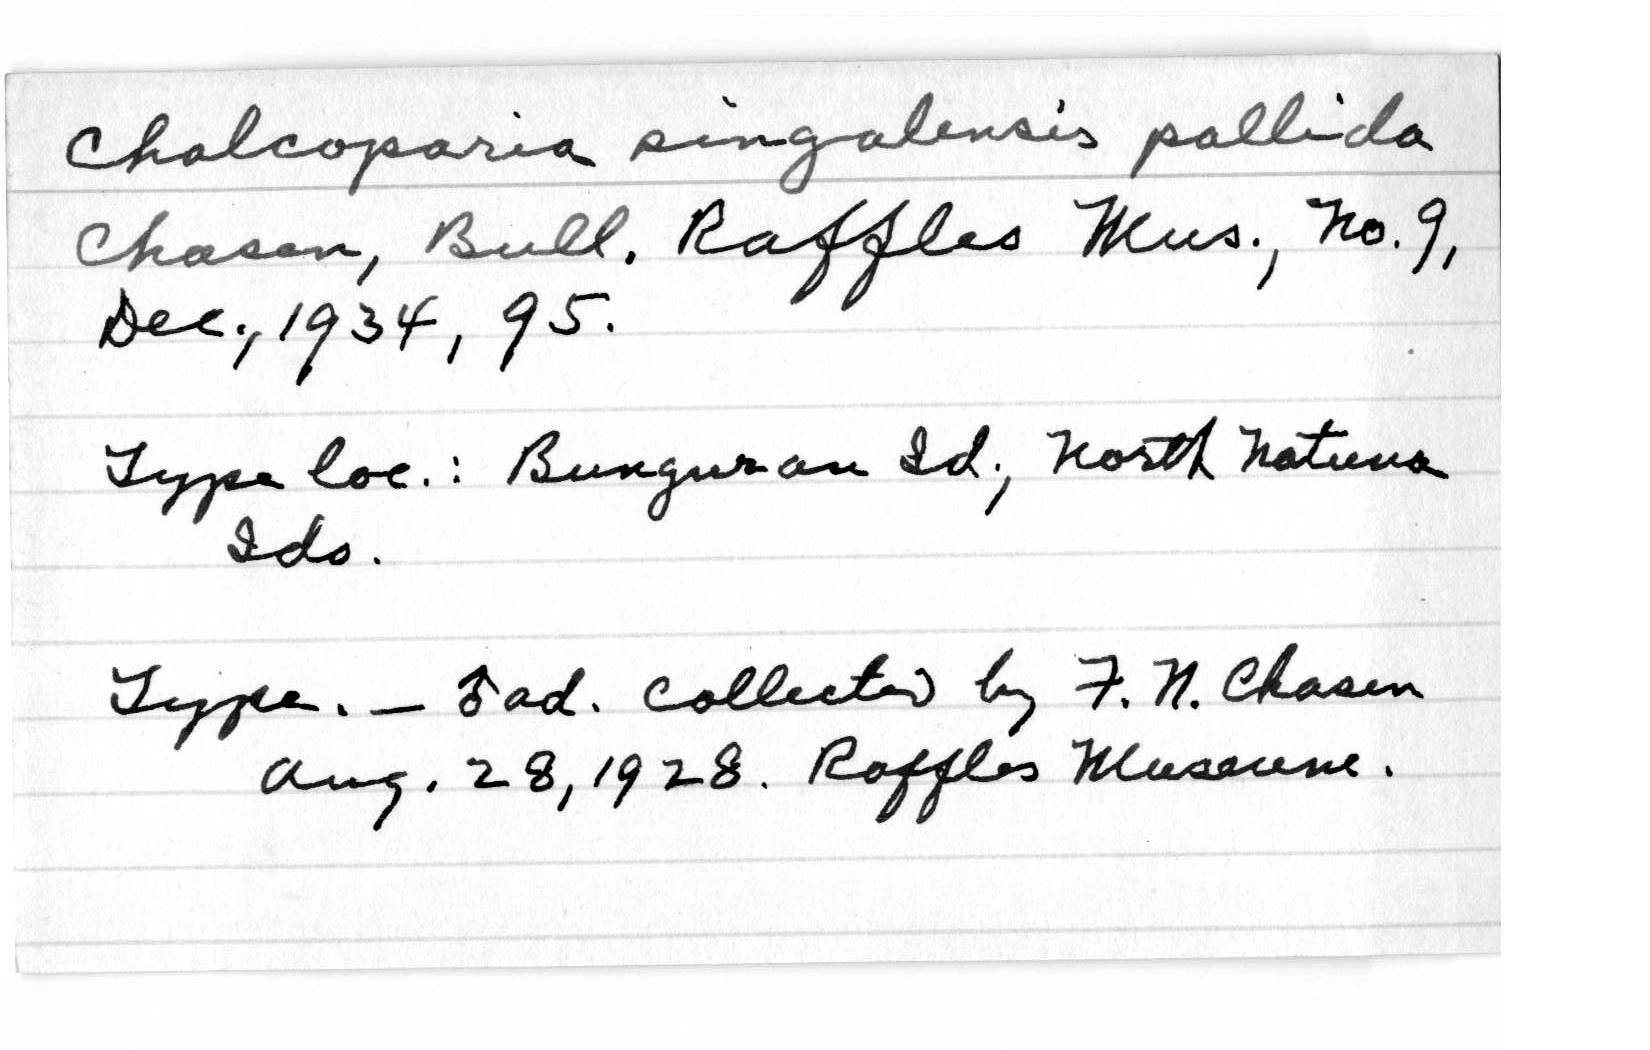 Chalcoparia singalensis pallida
Chasen, Bull. Raffles Mus., No. 9,
Dec., 1934, 95.
Type loc.: Bunguran Id., North Natuna
Ids.
Type. — ♂ ad. collected by F. N. Chasen
Aug. 28, 1928. Raffles Museum.